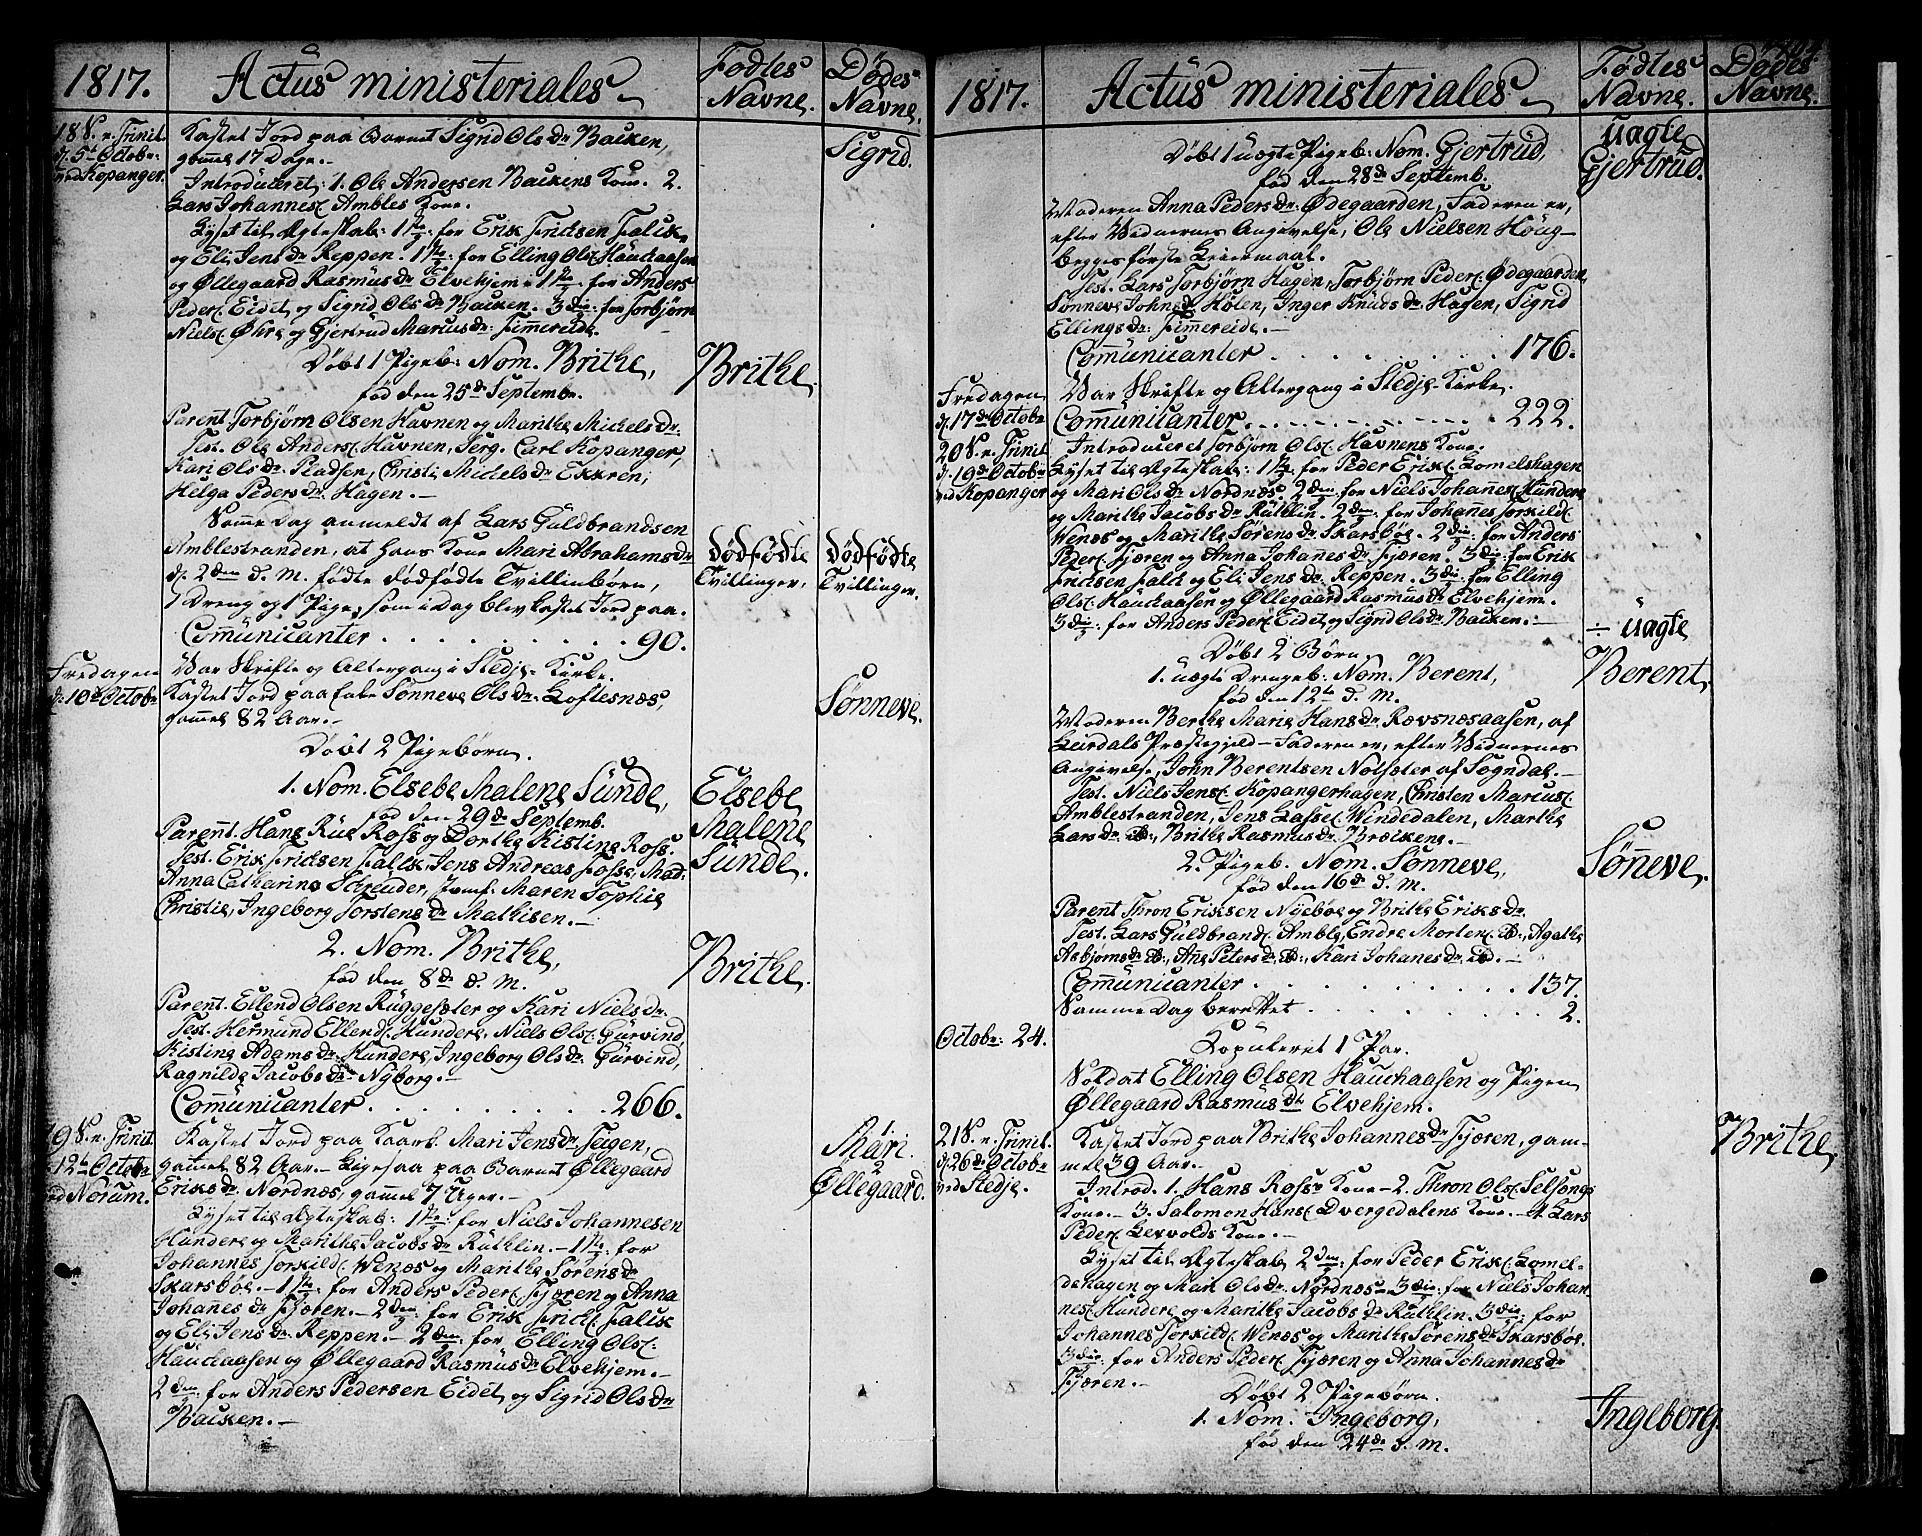 1817. Actus ministeriales Fødtes Navne. Dødes Navne.
18 S. e. Trinit. d. 5t Octobr: ved Kopanger.
Kastet Jord paa Barnet Sigrid Ols Dr Backen,
gammel 17 Dage.
Sigrid.
Introduceret: 1. Ole Andersen Backens Kone. 2.
Lars Johannes. Ambles Kone.
Lyset til Ægteskab: 1ste for Erik Fricksen Falck
og Eli Jens Dr Reppen. 1ste for Elling Ols. Hauchaasen
og Øllegaard Rasmus Dr Elvehjem. 1ste for Anders
Peders. Eidet og Sigrid Ols Dr Backen. 3die for Torbjørn
Niels. Øhre og Gjertrud Marcus Dr: Fimmereide.
Døbt 1 Pigeb: Nom. Brithe,
Brithe.
fød den 25de Septembr.
Parent. Torbjørn Olsen Havnen og Marithe Michels Dr.
Test. Ole Anders. Havnen, Serg. Carl Kopanger,
Kari Ols Dr. Pladsen, Christi Michels Dr Ekkren,
Helga Peders Dr. Hagen.
Samme Dag anmeldt af Lars Guldbrandsen
Amblestranden, at hans Kone Mari Abrahams Dr
d. 2den d. M. fødte dødfødte Tvillinbørn,
1 Dreng og 1 Pige, som i Dag blev kastet Jord paa.
dødfødte Tvillinger.
dødfødte Tvillinger.
Communicanter . . . 90.
Fredagen d. 10de Octobr
Var Skrifte og Altergang i Stedje-Kirke.
Kastet Jord paa Enke Sønneve Ols Dr. Loftesnæs,
gammel 82 Aar.
Sønneve.
Døbt 2 Pigebørn.
1. Nom. Elsebe Malene Sunde,
Elsebe Malene Sunde.
fød den 29de Septemb.
Parent. Hans Rue Ross og Dorthe Kistine Ross.
Test. Erik Fricksen Falck, Jens Andreas Fosse, Mad.
Anna Catharina Schreuder, Jomf. Maren Sophie
Christie, Ingeborg Torstens Dr Mathisen.
2. Nom. Brithe,
Brithe.
fød den 8de d. M.
Parent. Ellend Olsen Ruggesæter og Kari Niels Dr.
Test. Hermund Ellends. Hundere, Niels Ols. Gurvind,
Kistine Adams Dr. Hundere, Ingeborg Ols Dr. Gurvind,
Ragnilde Jacobs Dr Nyborg.
Communicanter . . . 266.
19 S. e. Trinit. d. 12te Octobr ved Norum.
Kastet Jord paa Kaark. Mari Jens Dr. Teigen,
gammel 82 Aar. Ligesaa paa Barnet Øllegaard
Eriks Dr. Nordnæs, gammel 7 Uger.
1 Mari. 2 Øllegaard.
Lyset til Ægteskab: 1ste for Niels Johannesen
Hundere og Marithe Jacobs Dr Ruthlin. 1ste for
Johannes Torkild. Wenæs og Marithe Sørens Dr
Skarsbøe. 1ste for Anders Peders. Fjæren og Anna
Johannes Dr Fjæren. 2den for Erik Frick. Falck
og Eli Jens Dr. Reppen. 2den for Elling Ols.
Hauchaasen og Øllegaard Rasmus Dr Elvehjem.
2den for Anders Pedersen Eidet og Sigrid Ols Dr
Backen.
1817. Actus ministeriales Fødtes Navne. Dødes Navne.
Døbt 1 uægte Pigeb: Nom. Gjertrud,
uægte Gjertrud.
fød den 28de Septemb.
Moderen Anna Peders Dr: Ødegaarden, Faderen er,
efter Vidnernes Angivelse, Ole Nielsen Houg-
begges første Leiermaal.
Test. Lars Torbjørn. Hagen, Torbjørn Peders. Ødegaarden,
Sønneve Johns Dr Hølen, Inger Knuds Dr Hagen, Sigrid
Ellings Dr: Fimmereide.
Communicanter . . . 176.
Fredagen d. 17de Octobr
Var Skrifte og Altergang i Stedje-Kirke.
Communicanter . . . 222.
20 S. e. Trinit. d. 19de Octobr ved Kopanger
Introduceret Torbjørn Ols. Havnens Kone.
Lyset til Ægteskab: 1ste for Peder Erik. Lomelshagen
og Mari Ols Dr Nordnæs. 2den for Niels Johannes. Hundere
og Marithe Jacobs Dr Ruthlin. 2den for Johannes Torkild.
Wenæs og Marithe Sørens Dr Skarsbøe. 2den for Anders
Peder. Fjæren og Anna Johannes Dr Fjæren. 3die for Erik
Fricksen Falck og Eli Jens Dr: Reppen. 3die for Elling
Ols. Hauchaasen og Øllegaard Rasmus Dr Elvehjem.
3die for Anders Peder. Eidet og Sigrid Ols Dr Backen.
Døbt 2 Børn.
1. uægte Drengeb. Nom. Berent,
÷ uægte Berent.
fød den 12te d. M.
Moderen Berthe Marie Hans Dr Rævsnæsaasen, af
Leirdals Præstegjeld - Faderen er, efter Vidnernes
Angivelse, John Berentsen Nølsæter af Sogndal.
Test. Niels Jens. Kopangerhagen, Christen Marcus.
Amblestranden, Jens Lasse. Windedalen, Marthe
Lars Dr. ib:, Brithe Rasmus Dr. Bræckene.
2. Pigeb. Nom. Sønneve,
Sønneve.
fød den 16de d. M.
Parent Thron Eriksen Nyebøe og Brithe Eriks Dr.
Test. Lars Guldbrand. Amble, Endre Morten. ib:, Agathe
Asbjørns Dr. ib:, Ane Peters Dr. ib:, Kari Johanes Dr. ib:.
Communicanter . . . 137.
Samme Dag berettet . . . 2.
Octobr: 24.
Kopuleret 1 Par.
Soldat Elling Olsen Hauchaasen og Pigen
Øllegaard Rasmus Dr Elvehjem.
21 S. e. Trinit. d. 26de Octobr ved Stedje.
Kastet Jord paa Brithe Johannes Dr Fjæren, gam-
mel 39 Aar.
Brithe
Introd. 1. Hans Ross's Kone - 2. Thron Ols. Selsengs
Kone - 3. Salomon Hans. Dvergedalens Kone - 4 Lars
Peder. Lexvolds Kone.
Lyset til Ægteskab 2den for Peder Erik. Lomel-
dehagen og Mari Ols Dr. Nordnæs. 3die for Niels Johan-
nes. Hundere og Marithe Jacobs Dr Ruthlin. 3die for
Johannes Torkild. Wenæs og Marithe Sørens Dr Skarsbøe.
3die for Anders Peder. Fjæren og Anna Johannes Dr
Fjæren.
Døbt 2 Pigebørn.
1. Nom. Ingeborg,
Ingeborg.
fød den 24de d. M.